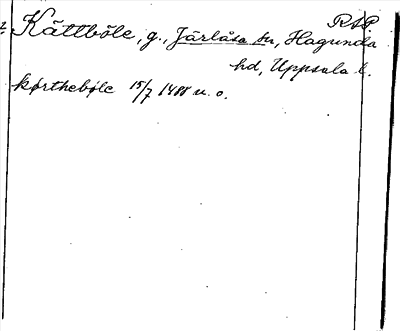 RAP.
Kättböle, g., Järlåsa sn, Hagunda
hd, Uppsala l.
kørthebøle 15/7 1488 u. o.